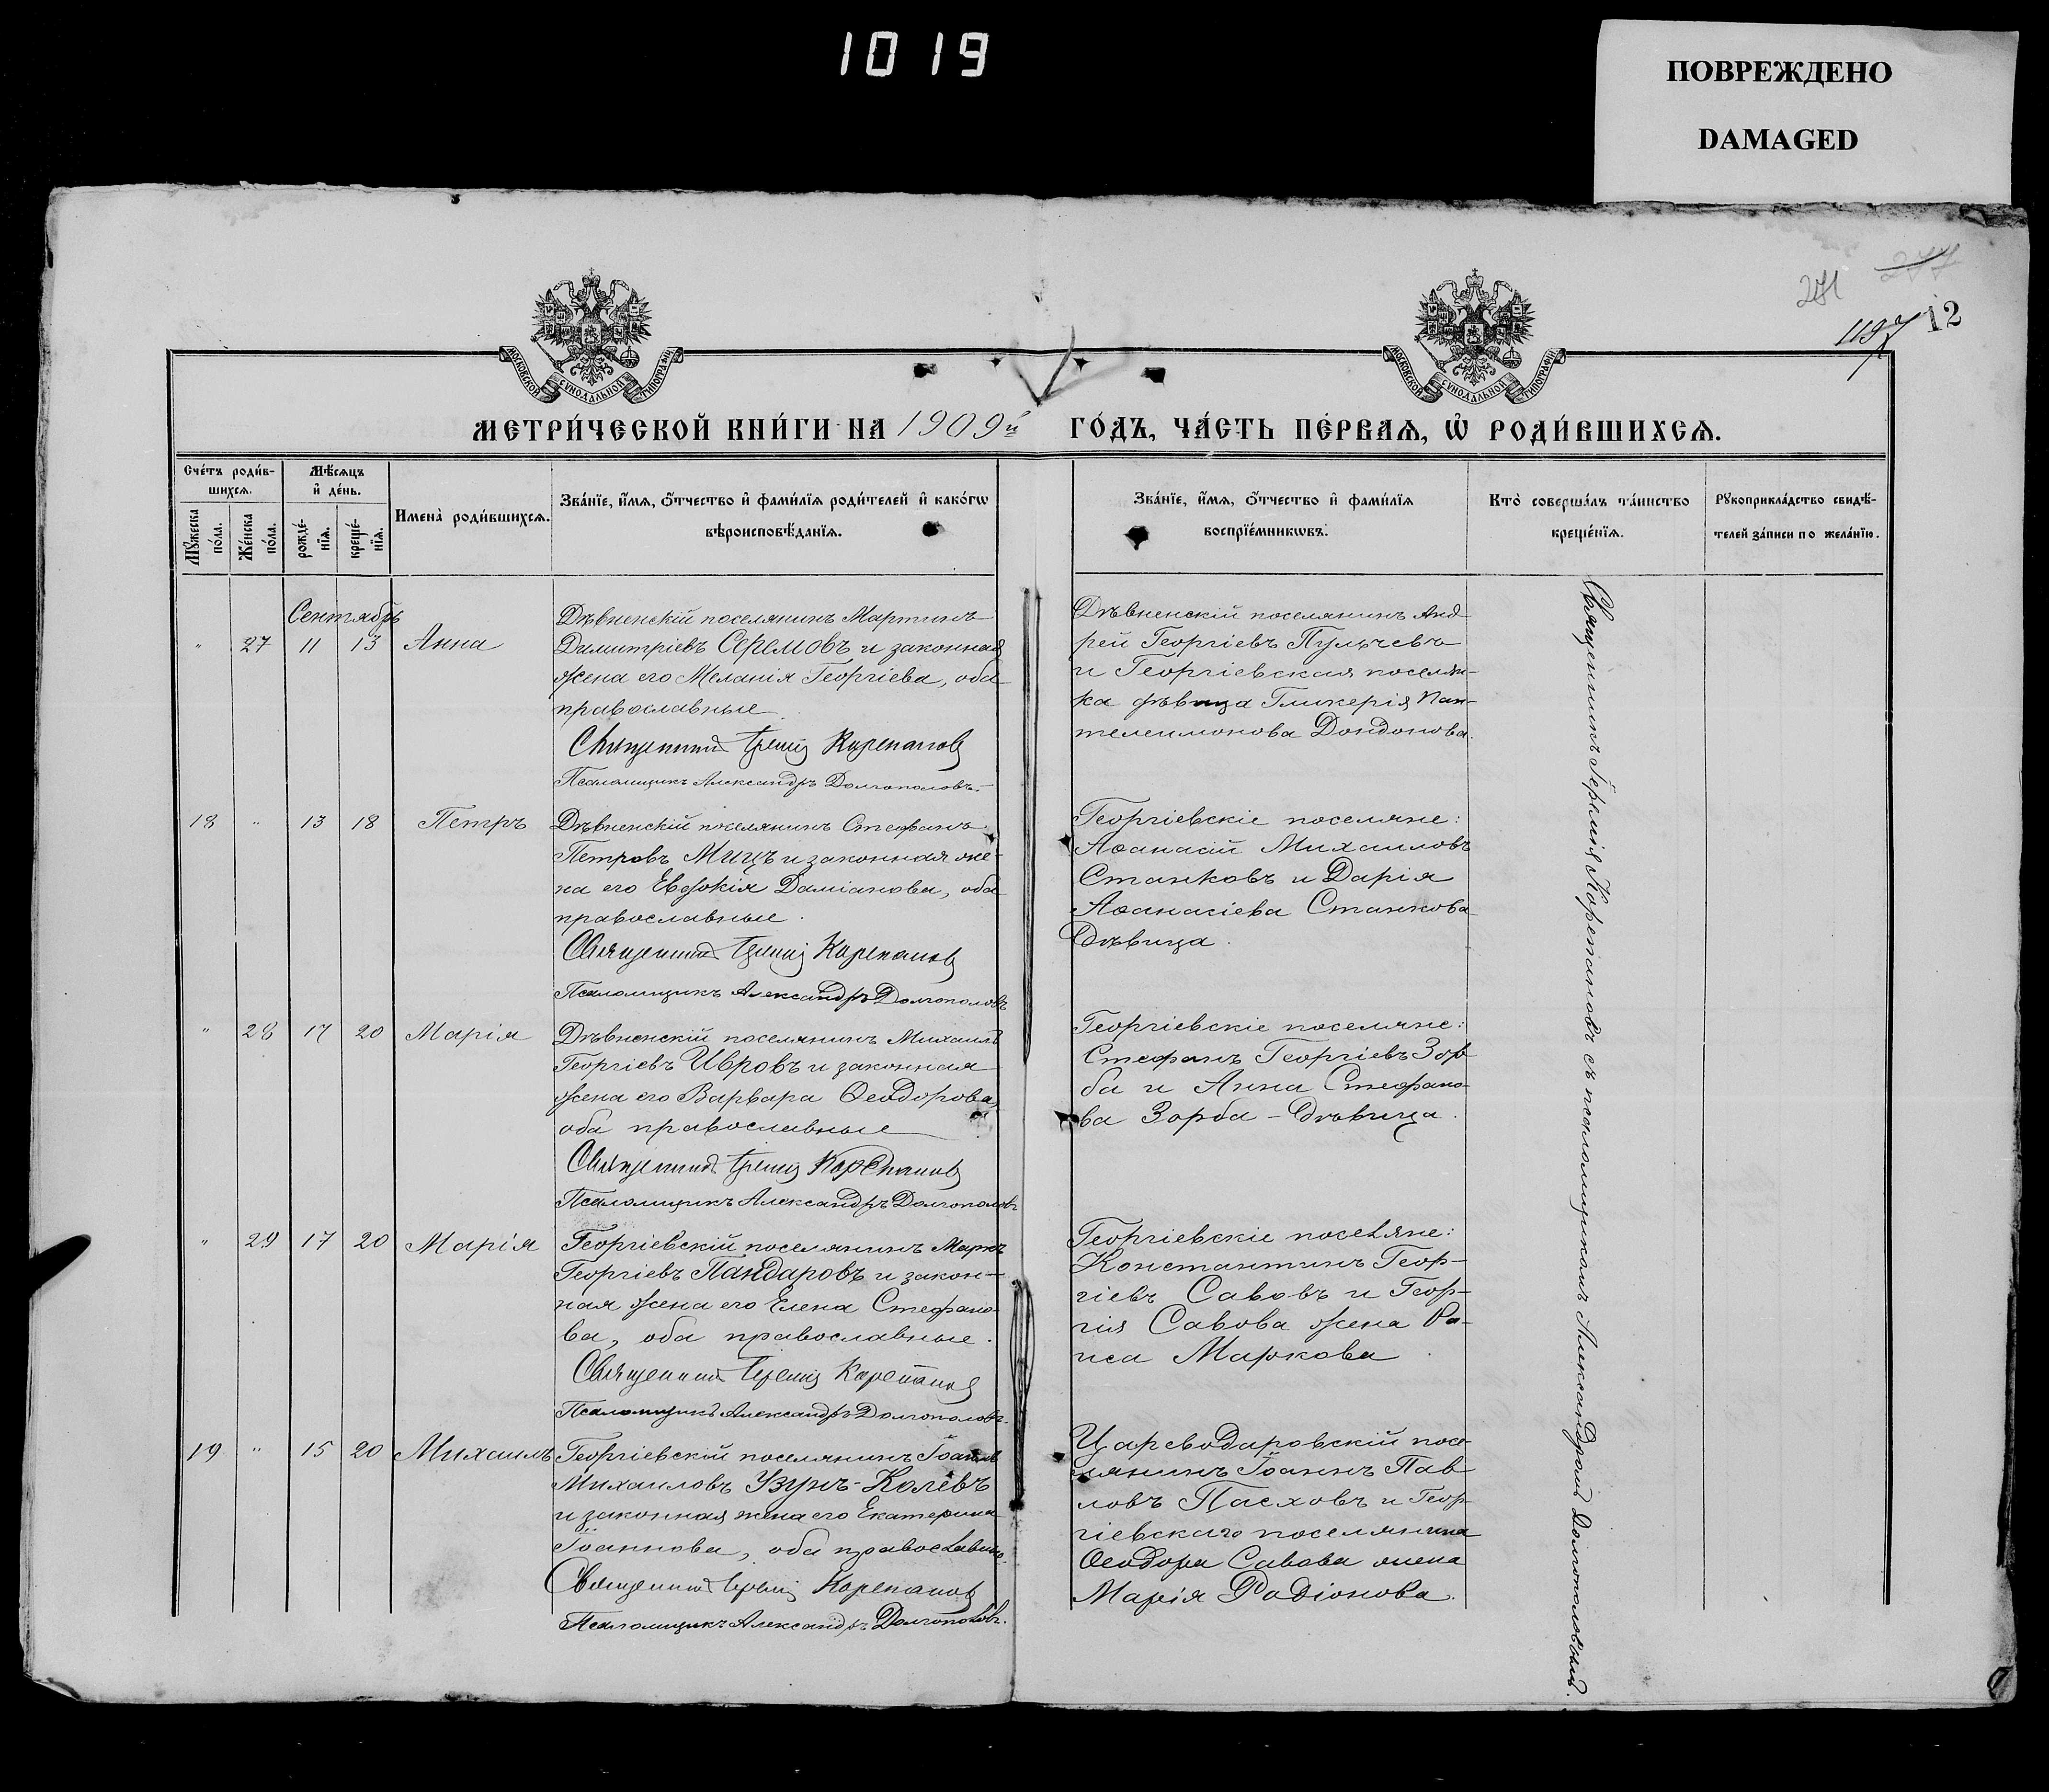 1019
ПОВРЕЖДЕНО
DAMAGED
277
271
1197
12
МОСКОВСКОЙ СѴНОДАЛЬНОЙ ТИПОГРАФІИ
МОСКОВСКОЙ СѴНОДАЛЬНОЙ ТИПОГРАФІИ
МЕТРИ́ЧЕСКОЙ КНИ́ГИ НА 1909й ГО́ДЪ, ЧА́СТЬ ПЕ́РВАѦ, Ѡ҆ РОДИ́ВШИХСѦ.
Сче́тъ роди́в-
шихсѧ.
Мѣ́сѧцъ
и҆ де́нь.
Мꙋ́жеска по́ла.
Же́нска по́ла.
рожде́-
нїѧ.
креще́-
нїѧ.
Имена̀ роди́вшихсѧ.
Зва́нїе, и҆́мѧ, ѻ҆́тчество и҆ фами́лїѧ роди́телей и҆ како́гѡ
вѣроисповѣ́данїѧ.
Зва́нїе, и҆́мѧ, ѻ҆́тчество и҆ фами́лїѧ
воспрїе́мникѡвъ.
Кто̀ соверша́лъ та́инство
креще́нїѧ.
Рꙋкоприкла́дство свидѣ́-
телей за́писи по жела́нїю.
Сентябрь
" 27 11 13 Анна
Дѣвненскій поселянинъ Мартинъ
Димитріевъ Серемовъ и законная
жена его Меланія Георгіева, оба
православные
Священникъ Іеремія Карепановъ
Псаломщикъ Александръ Долгополовъ.
Дѣвненскій поселянинъ Анд-
рей Георгіевъ Пулчевъ
и Георгіевская поселян-
ка дѣвица Гликерія Пан-
телеимонова Дондонова.
18 " 13 18 Петръ
Дѣвненскій поселянинъ Стефанъ
Петровъ Мицъ и законная же-
на его Евдокія Даміанова, оба
православные.
Священникъ Іеремія Карепановъ
Псаломщикъ Александръ Долгополовъ
Георгіевскіе поселяне:
Аѳанасій Михаиловъ
Станковъ и Дарія
Аѳанасіева Станкова
Дѣвица.
" 28 17 20 Марія
Дѣвненскій поселянинъ Михаилъ
Георгіевъ Ивровъ и законная
жена его Варвара Ѳеодорова
оба православные
Священникъ Іеремія Карепановъ
Псаломщикъ Александръ Долгополовъ
Георгіевскіе поселяне:
Стефанъ Георгіевъ Зор-
ба и Анна Стефано-
ва Зорба – Дѣвица.
" 29 17 20 Марія
Георгіевскій поселянинъ Маркъ
Георгіевъ Пандаровъ и закон-
ная жена его Елена Стефано-
ва, оба православные.
Священникъ Іеремія Карепановъ
Псаломщикъ Александръ Долгополовъ.
Георгіевскіе поселяне:
Константинъ Геор-
гіевъ Савовъ и Геор-
гія Савова жена Ра-
иса Маркова.
19 " 15 20 Михаилъ
Георгіевскій поселянинъ Іоаннъ
Михаиловъ Узунъ-Колевъ
и законная жена его Екатерина
Іоаннова, оба православные.
Священникъ Іеремія Карепановъ
Псаломщикъ Александръ Долгополовъ.
Цареводаровскій посе-
лянинъ Іоаннъ Пав-
ловъ Пасховъ и Геор-
гіевскаго поселянина
Ѳеодора Савова жена
Марія Родіонова.
Священникъ Іеремія Карепановъ съ псаломщикомъ Александромъ Долгополовымъ.